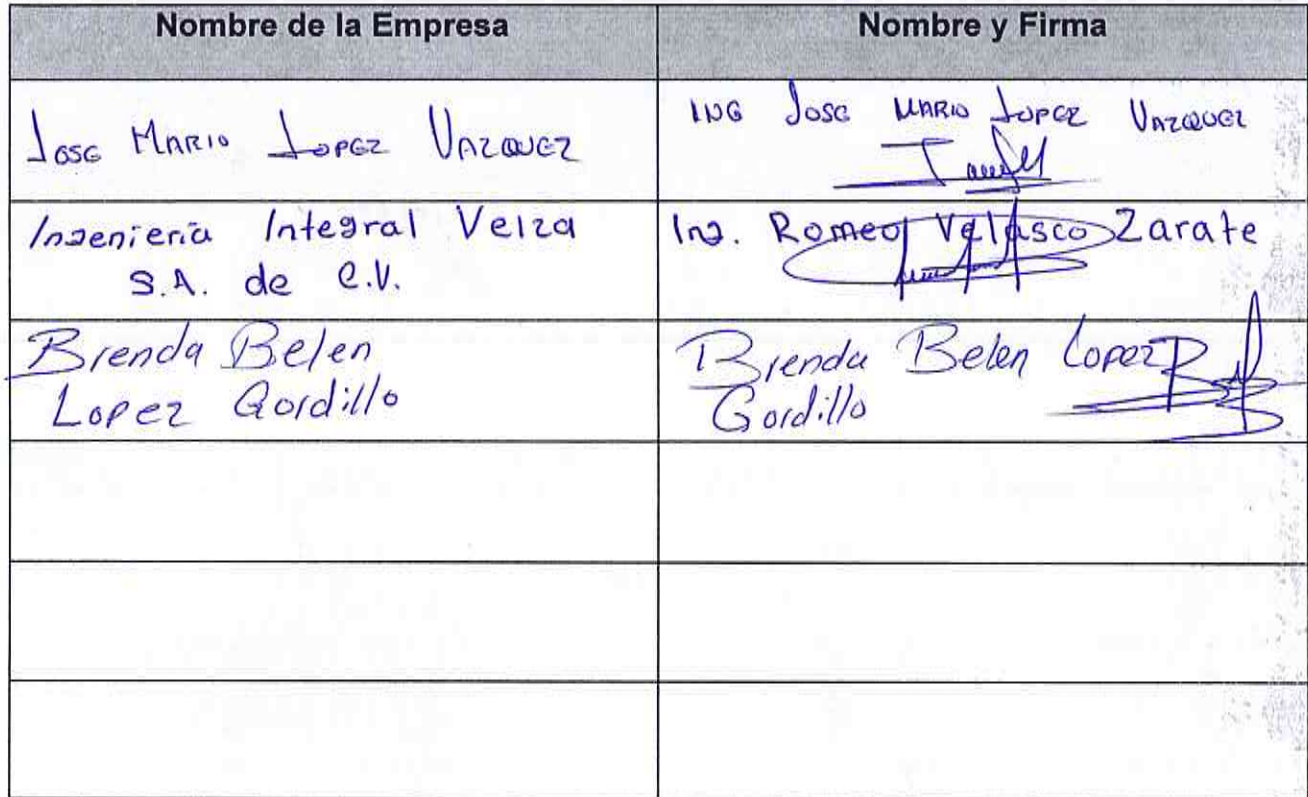 Nombre de la Empresa
Nombre y Firma
Jose Mario Lopez Vazquez
ING Jose Mario Lopez Vazquez
Ingenieria Integral Velza
S.A. de C.V.
Ing. Romeo Velasco Zarate
Brenda Belen
Lopez Gordillo
Brenda Belen Lopez
Gordillo